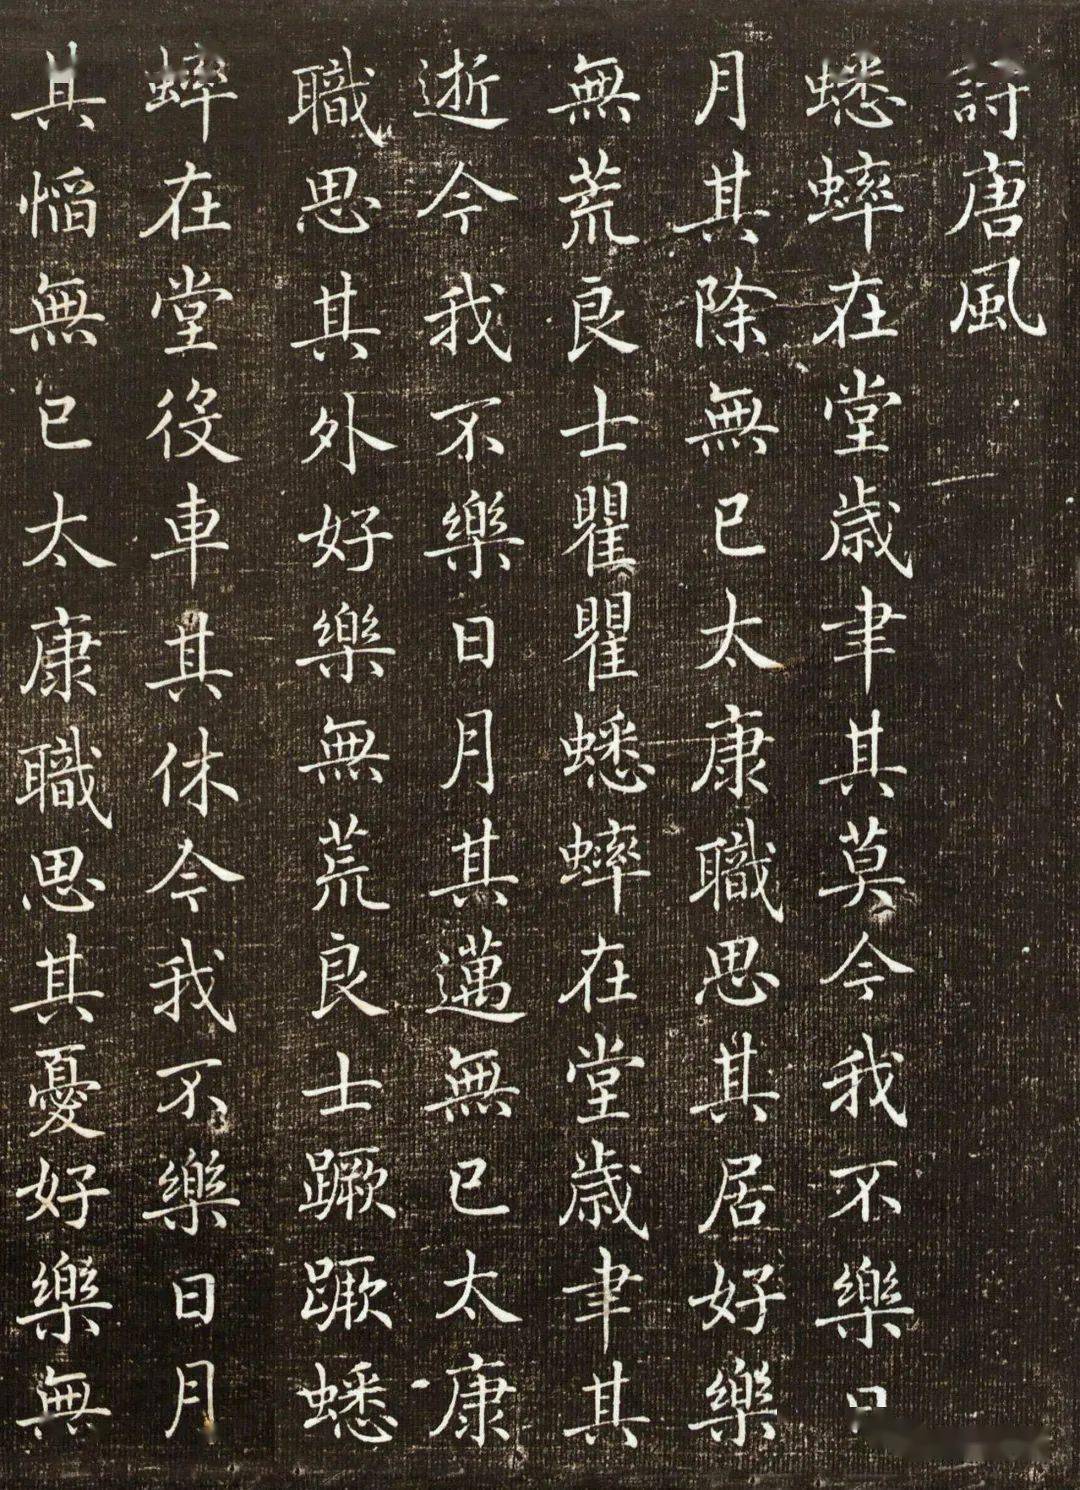 詩唐風
蟋蟀在堂歲聿其莫今我不樂日
月其除無已太康職思其居好樂
無荒良士瞿瞿蟋蟀在堂歲聿其
逝今我不樂日月其邁無已太康
職思其外好樂無荒良士蹶蹶蟋
蟀在堂役車其休今我不樂日月
其慆無已太康職思其憂好樂無